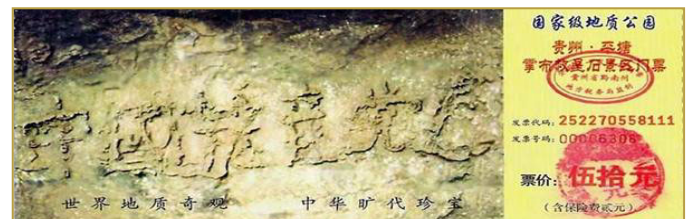 中国共産党亡
世界地质奇观 中华旷代珍宝
国家级地质公园
贵州·平塘
掌布救星石景区门票
贵州省黔南州
发票代码: 252270558111
发票号码: 00006306
票价: 伍拾元
(含保险费贰元)